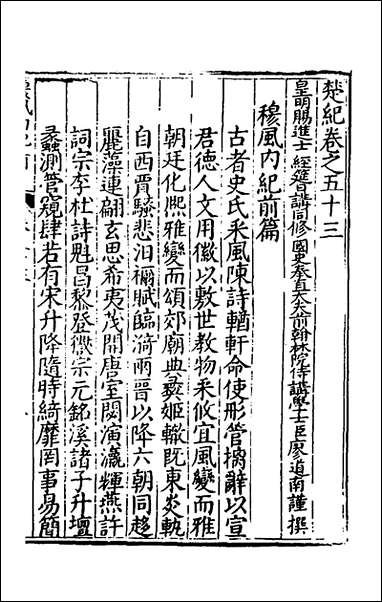 楚紀卷之五十三
皇明賜進士經筵日講同修國史奉直大夫前翰林院侍講學士臣廖道南謹撰
穆風內紀前篇
古者史氏采風陳詩輶軒命使形管摛辭以宣
君德人文用徽以敷世教物采攸宜風變而雅
朝廷化熈雅變而頌郊廟典彞姬轍旣東炎軌
自西賈騷悲汨禰賦臨漪兩晉以降六朝同趍
麗藻連翩玄思希夷茂開唐室閎演瀛輝燕許
詞宗李杜詩魁昌黎登徽宗元銘溪諸子升壇
蠡測管窺肆若有宋升降隨時綺靡罔事易簡